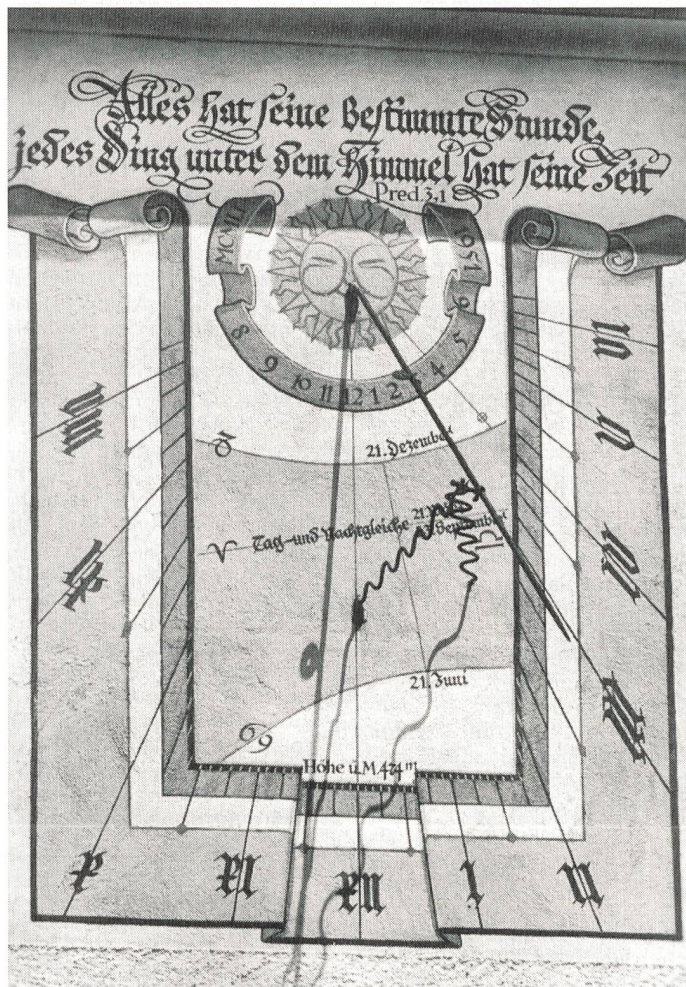 Alles hat seine Bestimmte Stunde,
jedes Ding unter dem Himmel hat seine Zeit
Pred. 3,1
MCMLI
1951
8 9 10 11 12 1 2 3 4 5 6
21. Dezember
Tag- und Nachtgleiche 21. September
21. Juni
Höhe ü. M. 424 m
VIII
IX
X
XI
XII
I
II
III
IV
V
VI